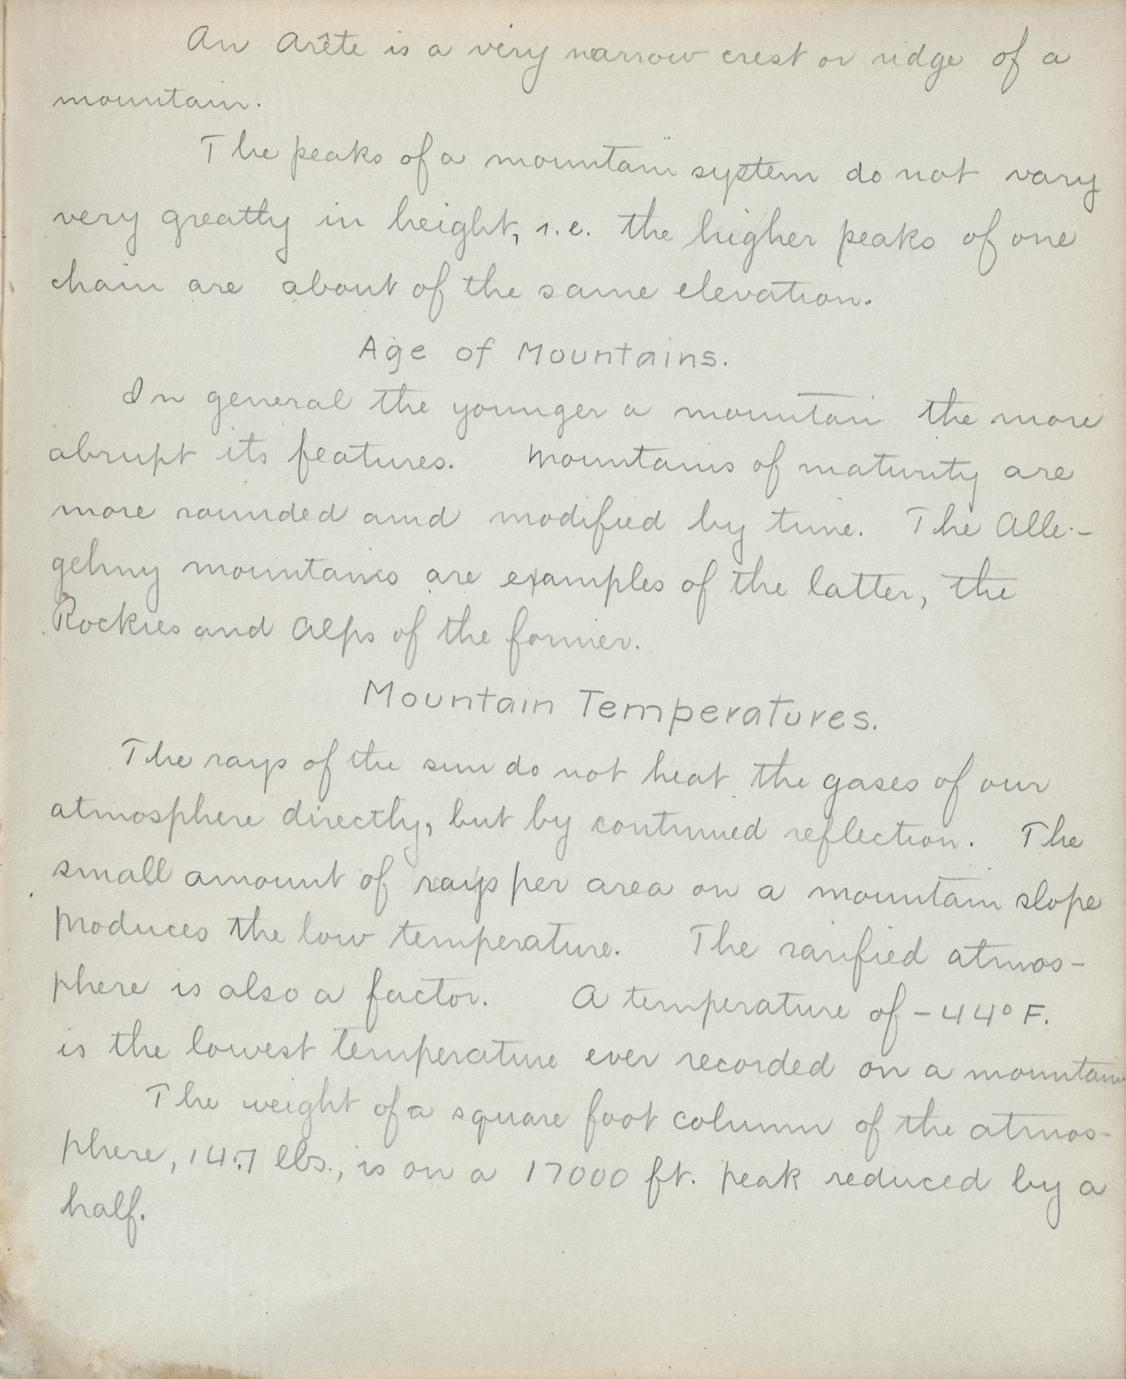 An Arête is a very narrow crest or ridge of a
mountain.
The peaks of a mountain system do not vary
very greatly in height, i.e. the higher peaks of one
chain are about of the same elevation.
Age of Mountains.
In general the younger a mountain the more
abrupt its features. Mountains of maturity are
more rounded and modified by time. The Alle-
gehny mountains are examples of the latter, the
Rockies and Alps of the former.
Mountain Temperatures.
The rays of the sun do not heat the gases of our
atmosphere directly, but by continued reflection. The
small amount of rays per area on a mountain slope
produces the low temperature. The rarified atmos-
phere is also a factor. A temperature of -44° F.
is the lowest temperature ever recorded on a mountain
The weight of a square foot column of the atmos-
phere, 14.7 lbs., is on a 17000 ft. peak reduced by a
half.